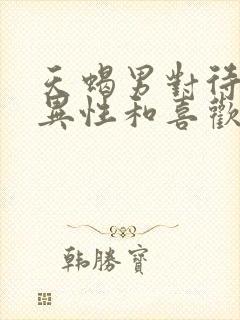 天蝎男對待
異性和喜歡
韩勝寶